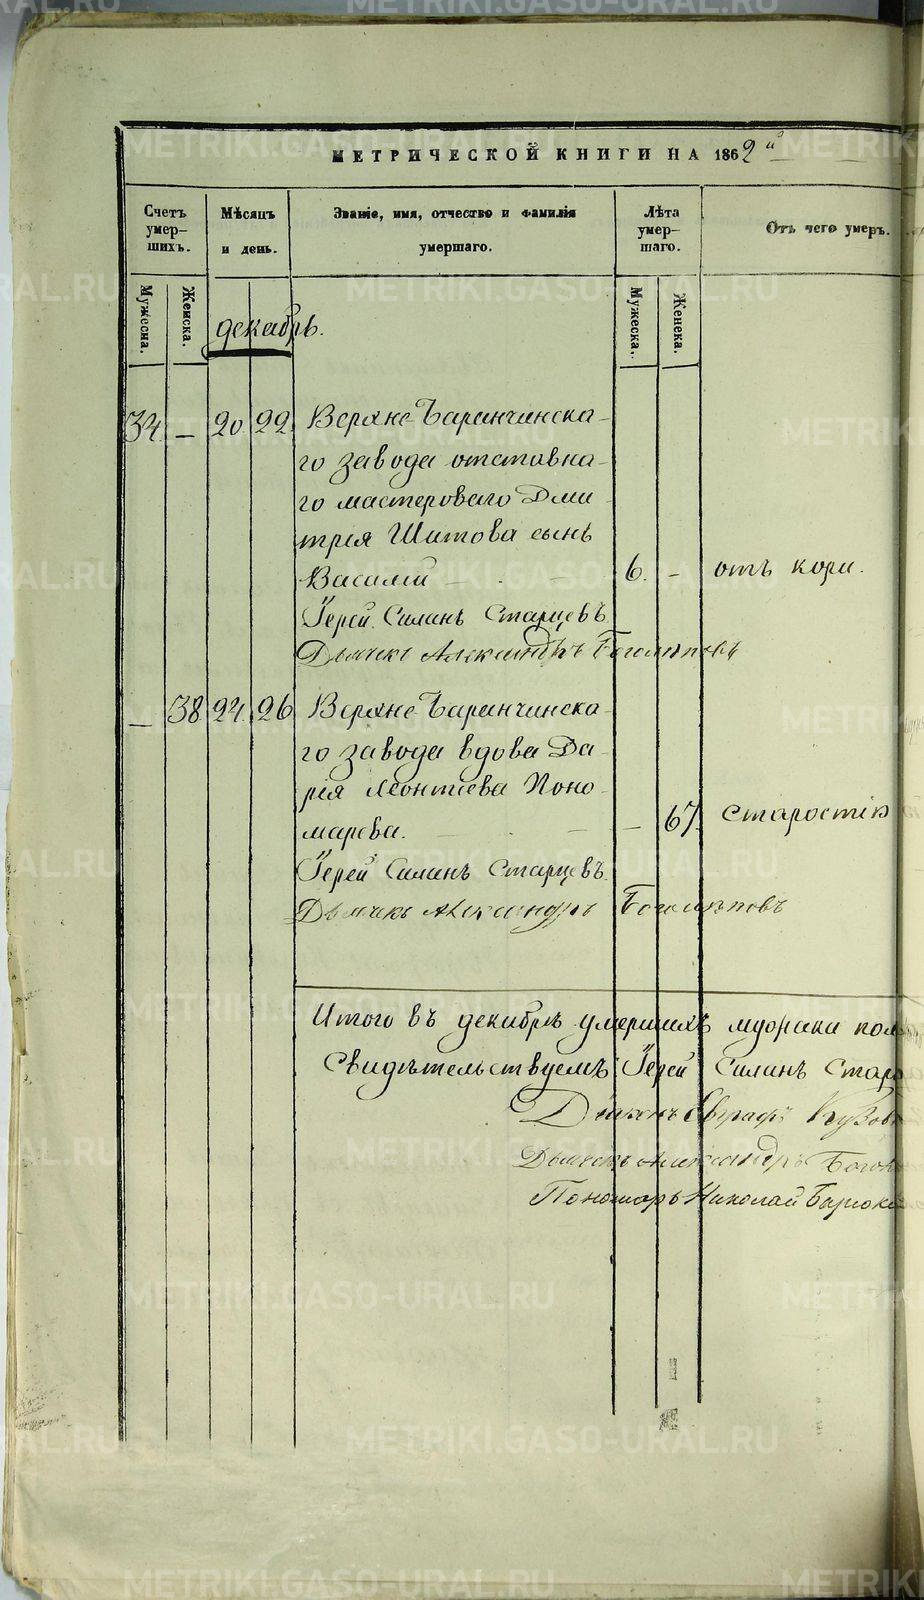 МЕТРИЧЕСКОЙ КНИГИ НА 1862й
Счетъ умер- шихъ.
Мѣсяцъ и день.
Званіе, имя, отчество и фамилія умершаго.
Лѣта умер- шаго.
Отъ чего умеръ.
Мужеска.
Женска.
Мужеска.
Женска.
декабрь.
34 – 20 22 Верхне-Баранчинска-
го завода отставна-
го мастероваго Дми-
трія Шитова сынъ
Василій – 6. – отъ кори.
Іерей Силинъ Старцевъ
Дьячекъ Александръ Боголѣповъ
– 38 24 26 Верхне-Баранчинска-
го завода вдова Да-
рія Леонтіева Поно-
марева. – 67. старостію
Іерей Силинъ Старцевъ.
Дьячекъ Александръ Боголѣповъ
Итого въ декабрѣ умершихъ мужска пол
Свидѣтельствуемъ: Іерей Силинъ Стар
Діаконъ Евграфъ Кузов
Дьячекъ Александръ Богол
Пономарь Николай
METRIKI.GASO-URAL.RU